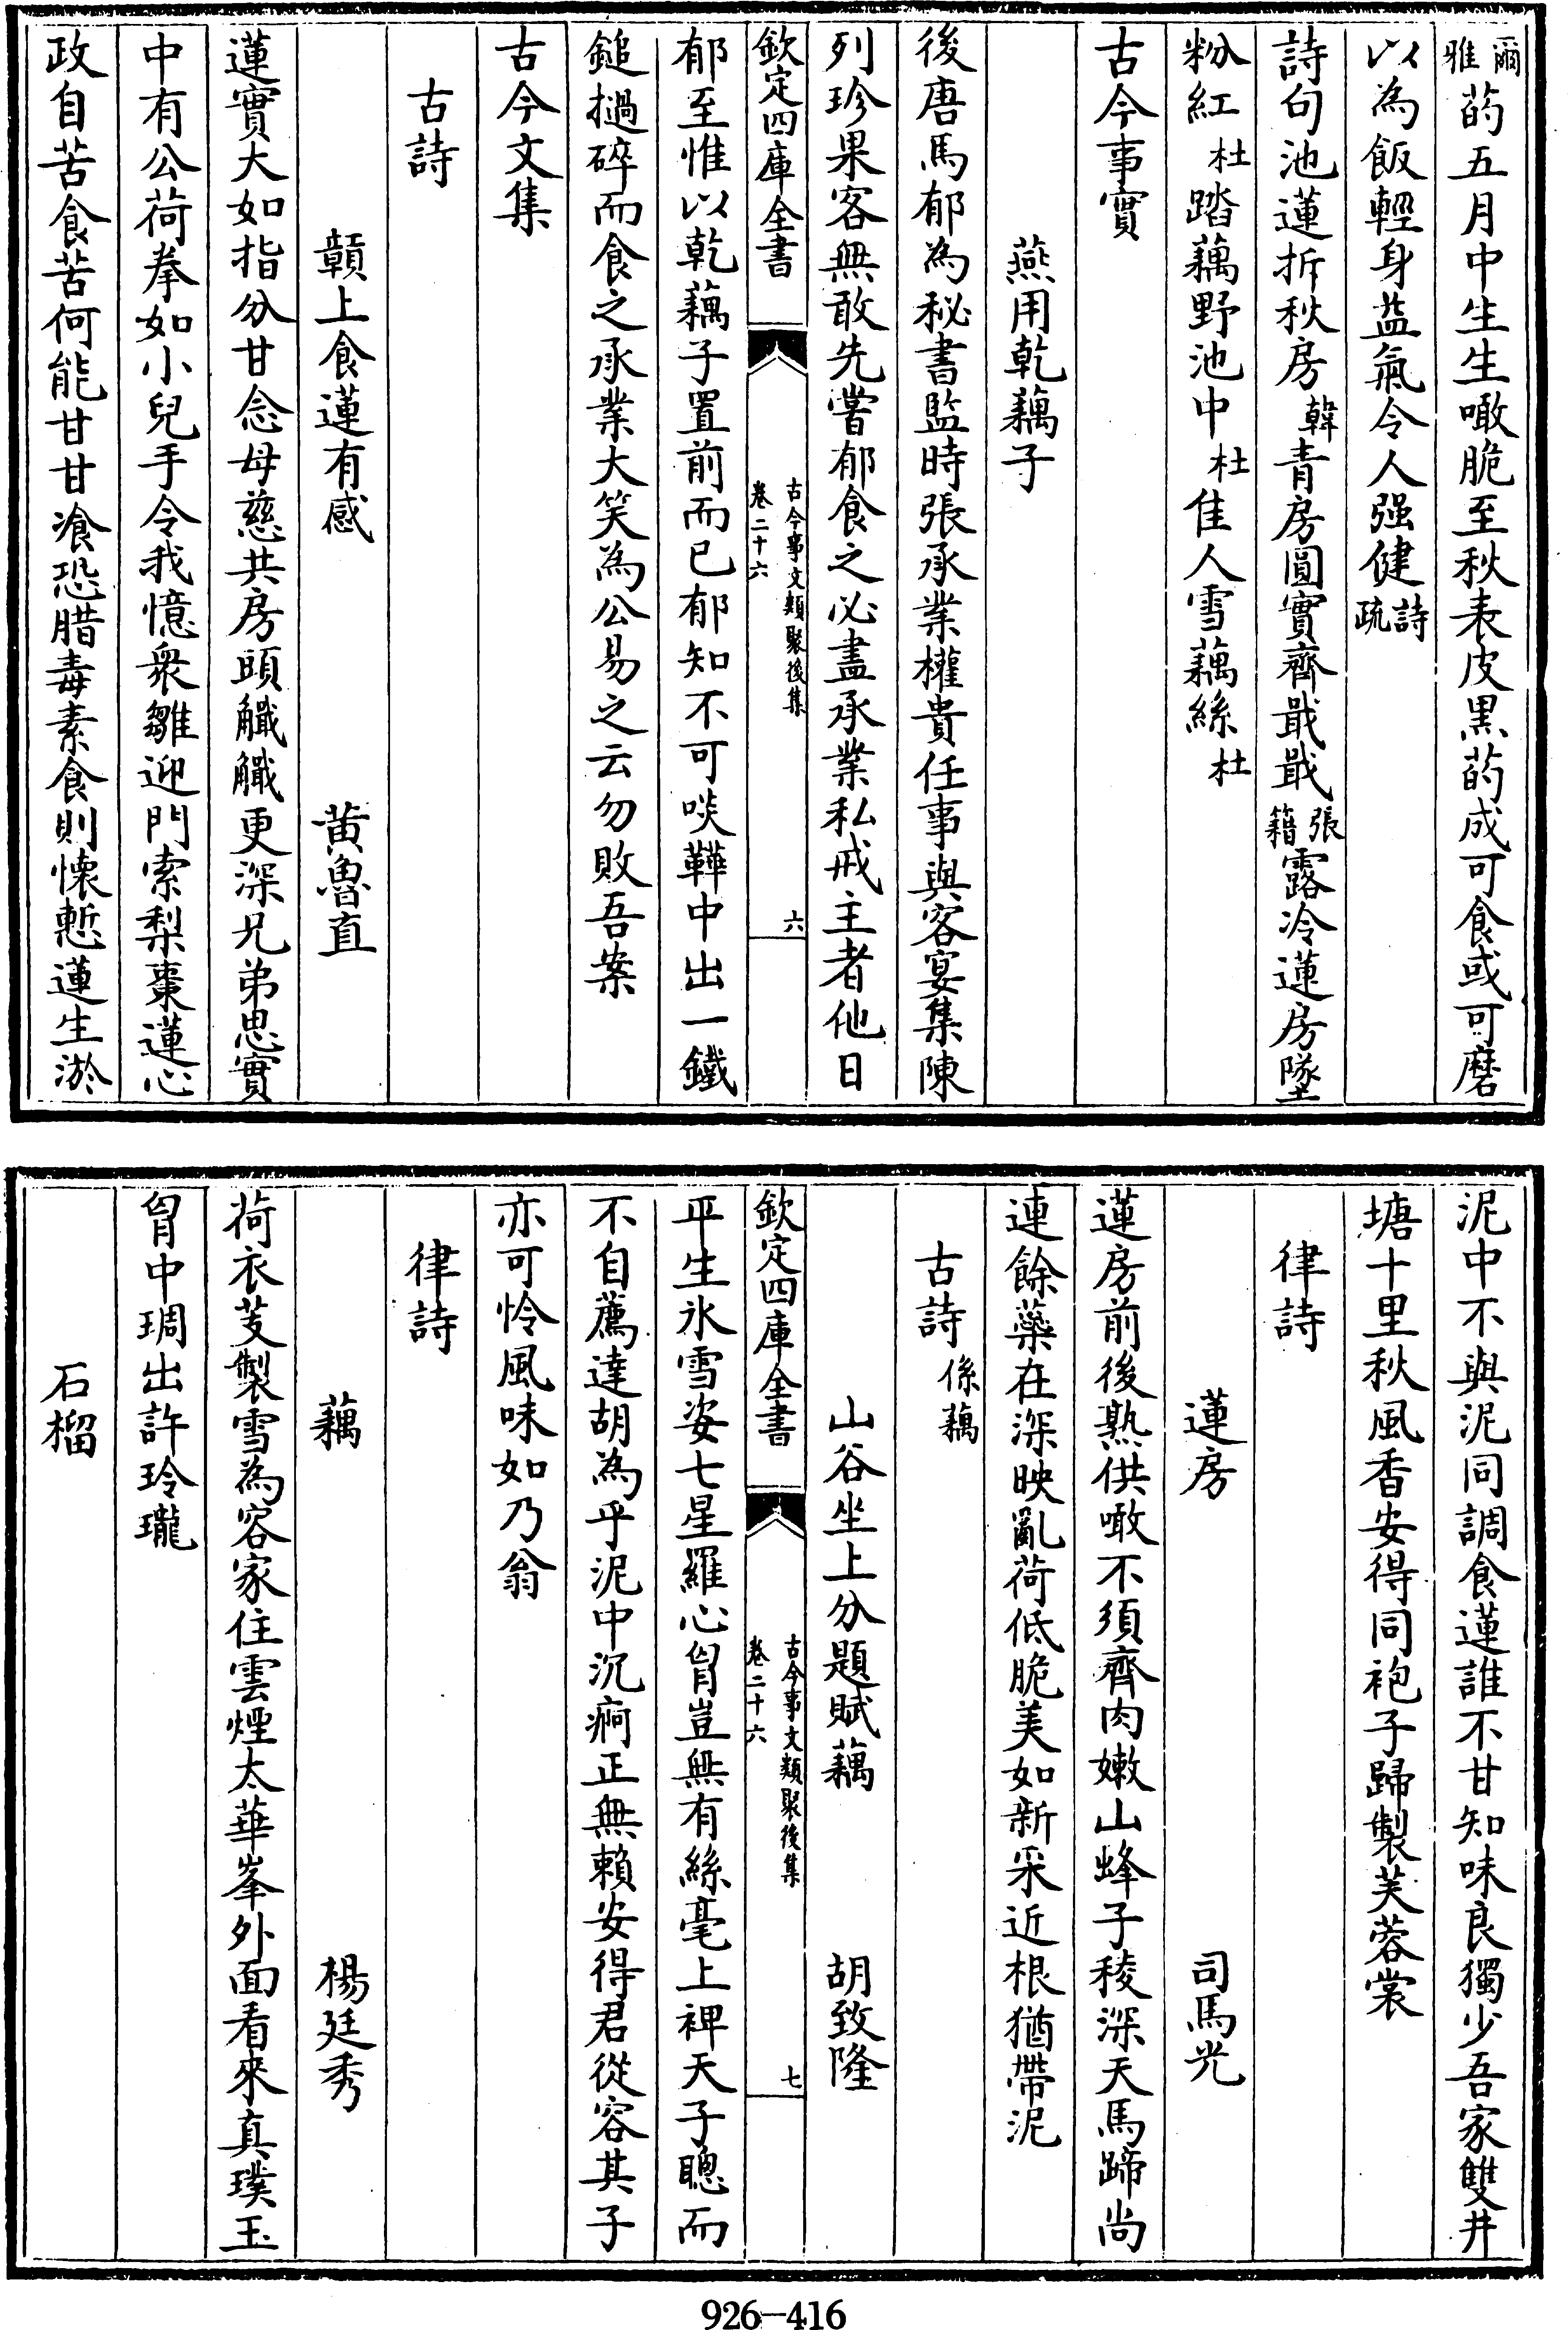 爾雅菂五月中生生噉脆至秋表皮黒菂成可食或可磨
以為飯輕身益氣令人强健詩疏
詩句池蓮折秋房韓青房圓實齊戢戢張籍露冷蓮房墜
粉紅杜踏藕野池中杜佳人雪藕絲杜
古今事實
燕用乾藕子
後唐馬郁為秘書監時張承業權貴任事與客宴集陳
列珍果客無敢先嘗郁食之必盡承業私戒主者他日
欽定四庫全書
古今事文類聚後集
卷二十六
六
郁至惟以乾藕子置前而已郁知不可啖鞾中出一鐵
鎚撾碎而食之承業大笑為公易之云勿敗吾案
古今文集
古詩
贑上食蓮有感 黄魯直
蓮實大如指分甘念母慈共房頭艥艥更深兄弟思實
中有公荷拳如小兒手令我憶衆雛迎門索梨棗蓮心
政自苦食苦何能甘甘飡恐腊毒素食則懐慙蓮生淤
泥中不與泥同調食蓮誰不甘知味良獨少吾家雙井
塘十里秋風香安得同袍子歸製芙蓉裳
律詩
蓮房 司馬光
蓮房前後熟供噉不須齊肉嫩山蜂子稜深天馬蹄尚
連餘蘂在深映亂荷低脆美如新采近根猶帶泥
古詩係藕
山谷坐上分題賦藕 胡致隆
欽定四庫全書
古今事文類聚後集
卷二十六
七
平生氷雪姿七星羅心胷豈無有絲毫上裨天子聰而
不自薦達胡為乎泥中沉痾正無賴安得君從容其子
亦可怜風味如乃翁
律詩
藕 楊廷秀
荷衣芰製雪為容家住雲煙太華峯外面看來真璞玉
胷中琱出許玲瓏
石榴
926-416